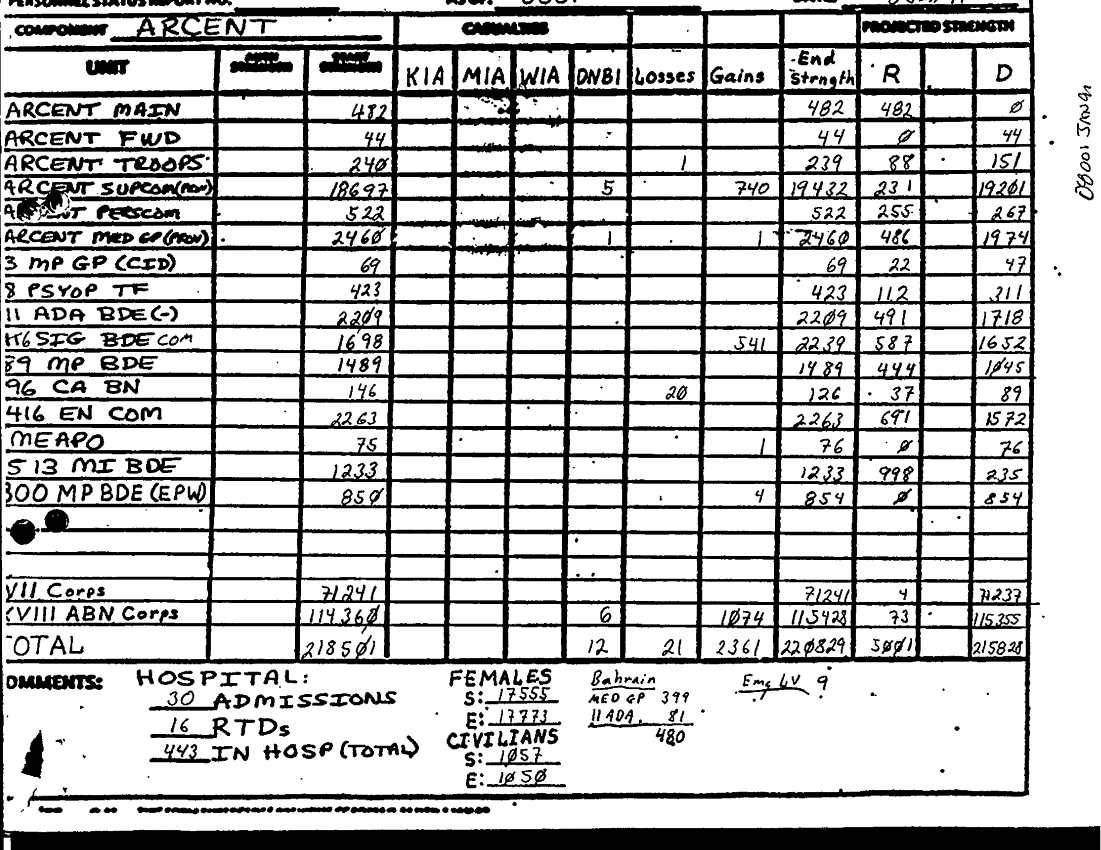 PERSONNEL STATUS REPORT NO.
COMPONENT ARCENT CASUALTIES PROJECTED STRENGTH
UNIT AUTH STRENGTH START STRENGTH KIA MIA WIA DNBI Losses Gains End Strngth R D
ARCENT MAIN 482 482 482 Ø
ARCENT FWD 44 44 Ø 44
ARCENT TROOPS 24Ø 1 239 88 151
ARCENT SUPCOM(PROV) 18697 5 740 19432 231 192Ø1
PERSCOM 522 522 255 267
ARCENT MED GP (PROV) 246Ø 1 1 246Ø 486 1974
3 MP GP (CID) 69 69 22 47
8 PSYOP TF 423 423 112 311
11 ADA BDE (-) 22Ø9 22Ø9 491 1718
SIG BDE COM 1698 541 2239 587 1652
89 MP BDE 1489 1489 444 1Ø45
96 CA BN 146 20 126 37 89
416 EN COM 2263 2263 691 1572
MEAPO 75 1 76 Ø 76
513 MI BDE 1233 1233 998 235
300 MP BDE (EPW) 85Ø 4 854 Ø 854
VII Corps 71241 71241 4 71237
XVIII ABN Corps 11436Ø 6 1Ø74 115428 73 115355
TOTAL 2185Ø1 12 21 2361 22Ø829 5ØØ1 215828
COMMENTS: HOSPITAL:
30 ADMISSIONS
16 RTDs
443 IN HOSP (TOTAL)
FEMALES
S: 17555
E: 17773
CIVILIANS
S: 1Ø57
E: 1Ø5Ø
Bahrain
MED GP 399
11 ADA 81
480
Emg LV 9